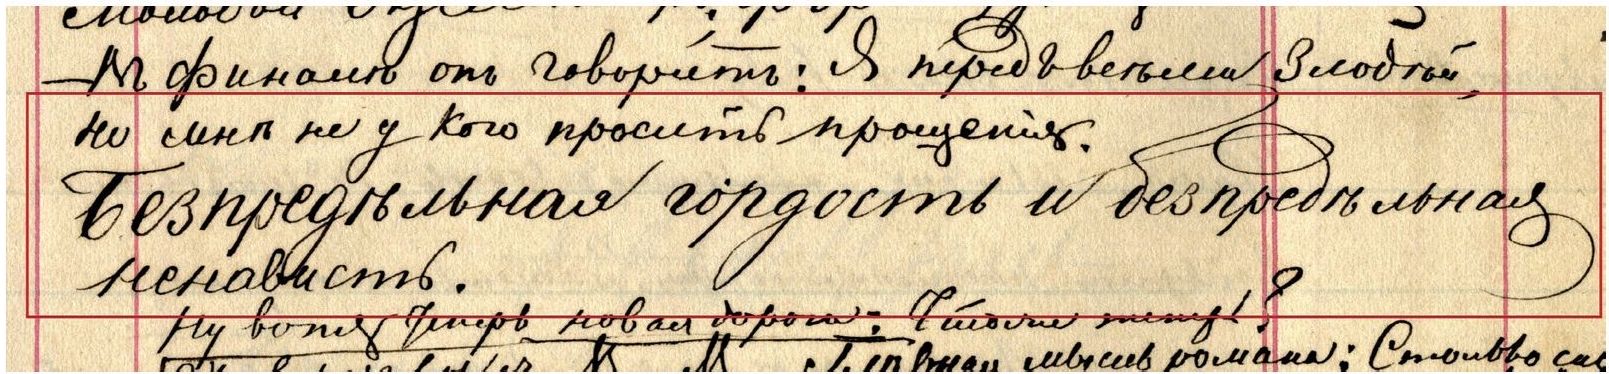 Въ финалѣ онъ говоритъ: Я передъ всѣми злодѣй,
но мнѣ не у кого просить прощенія.
Безпредѣльная гордость и безпредѣльная
ненависть.
Ну вотъ я теперь новая дорога: Чтоже теперь?
Главная мысль романа: Столько